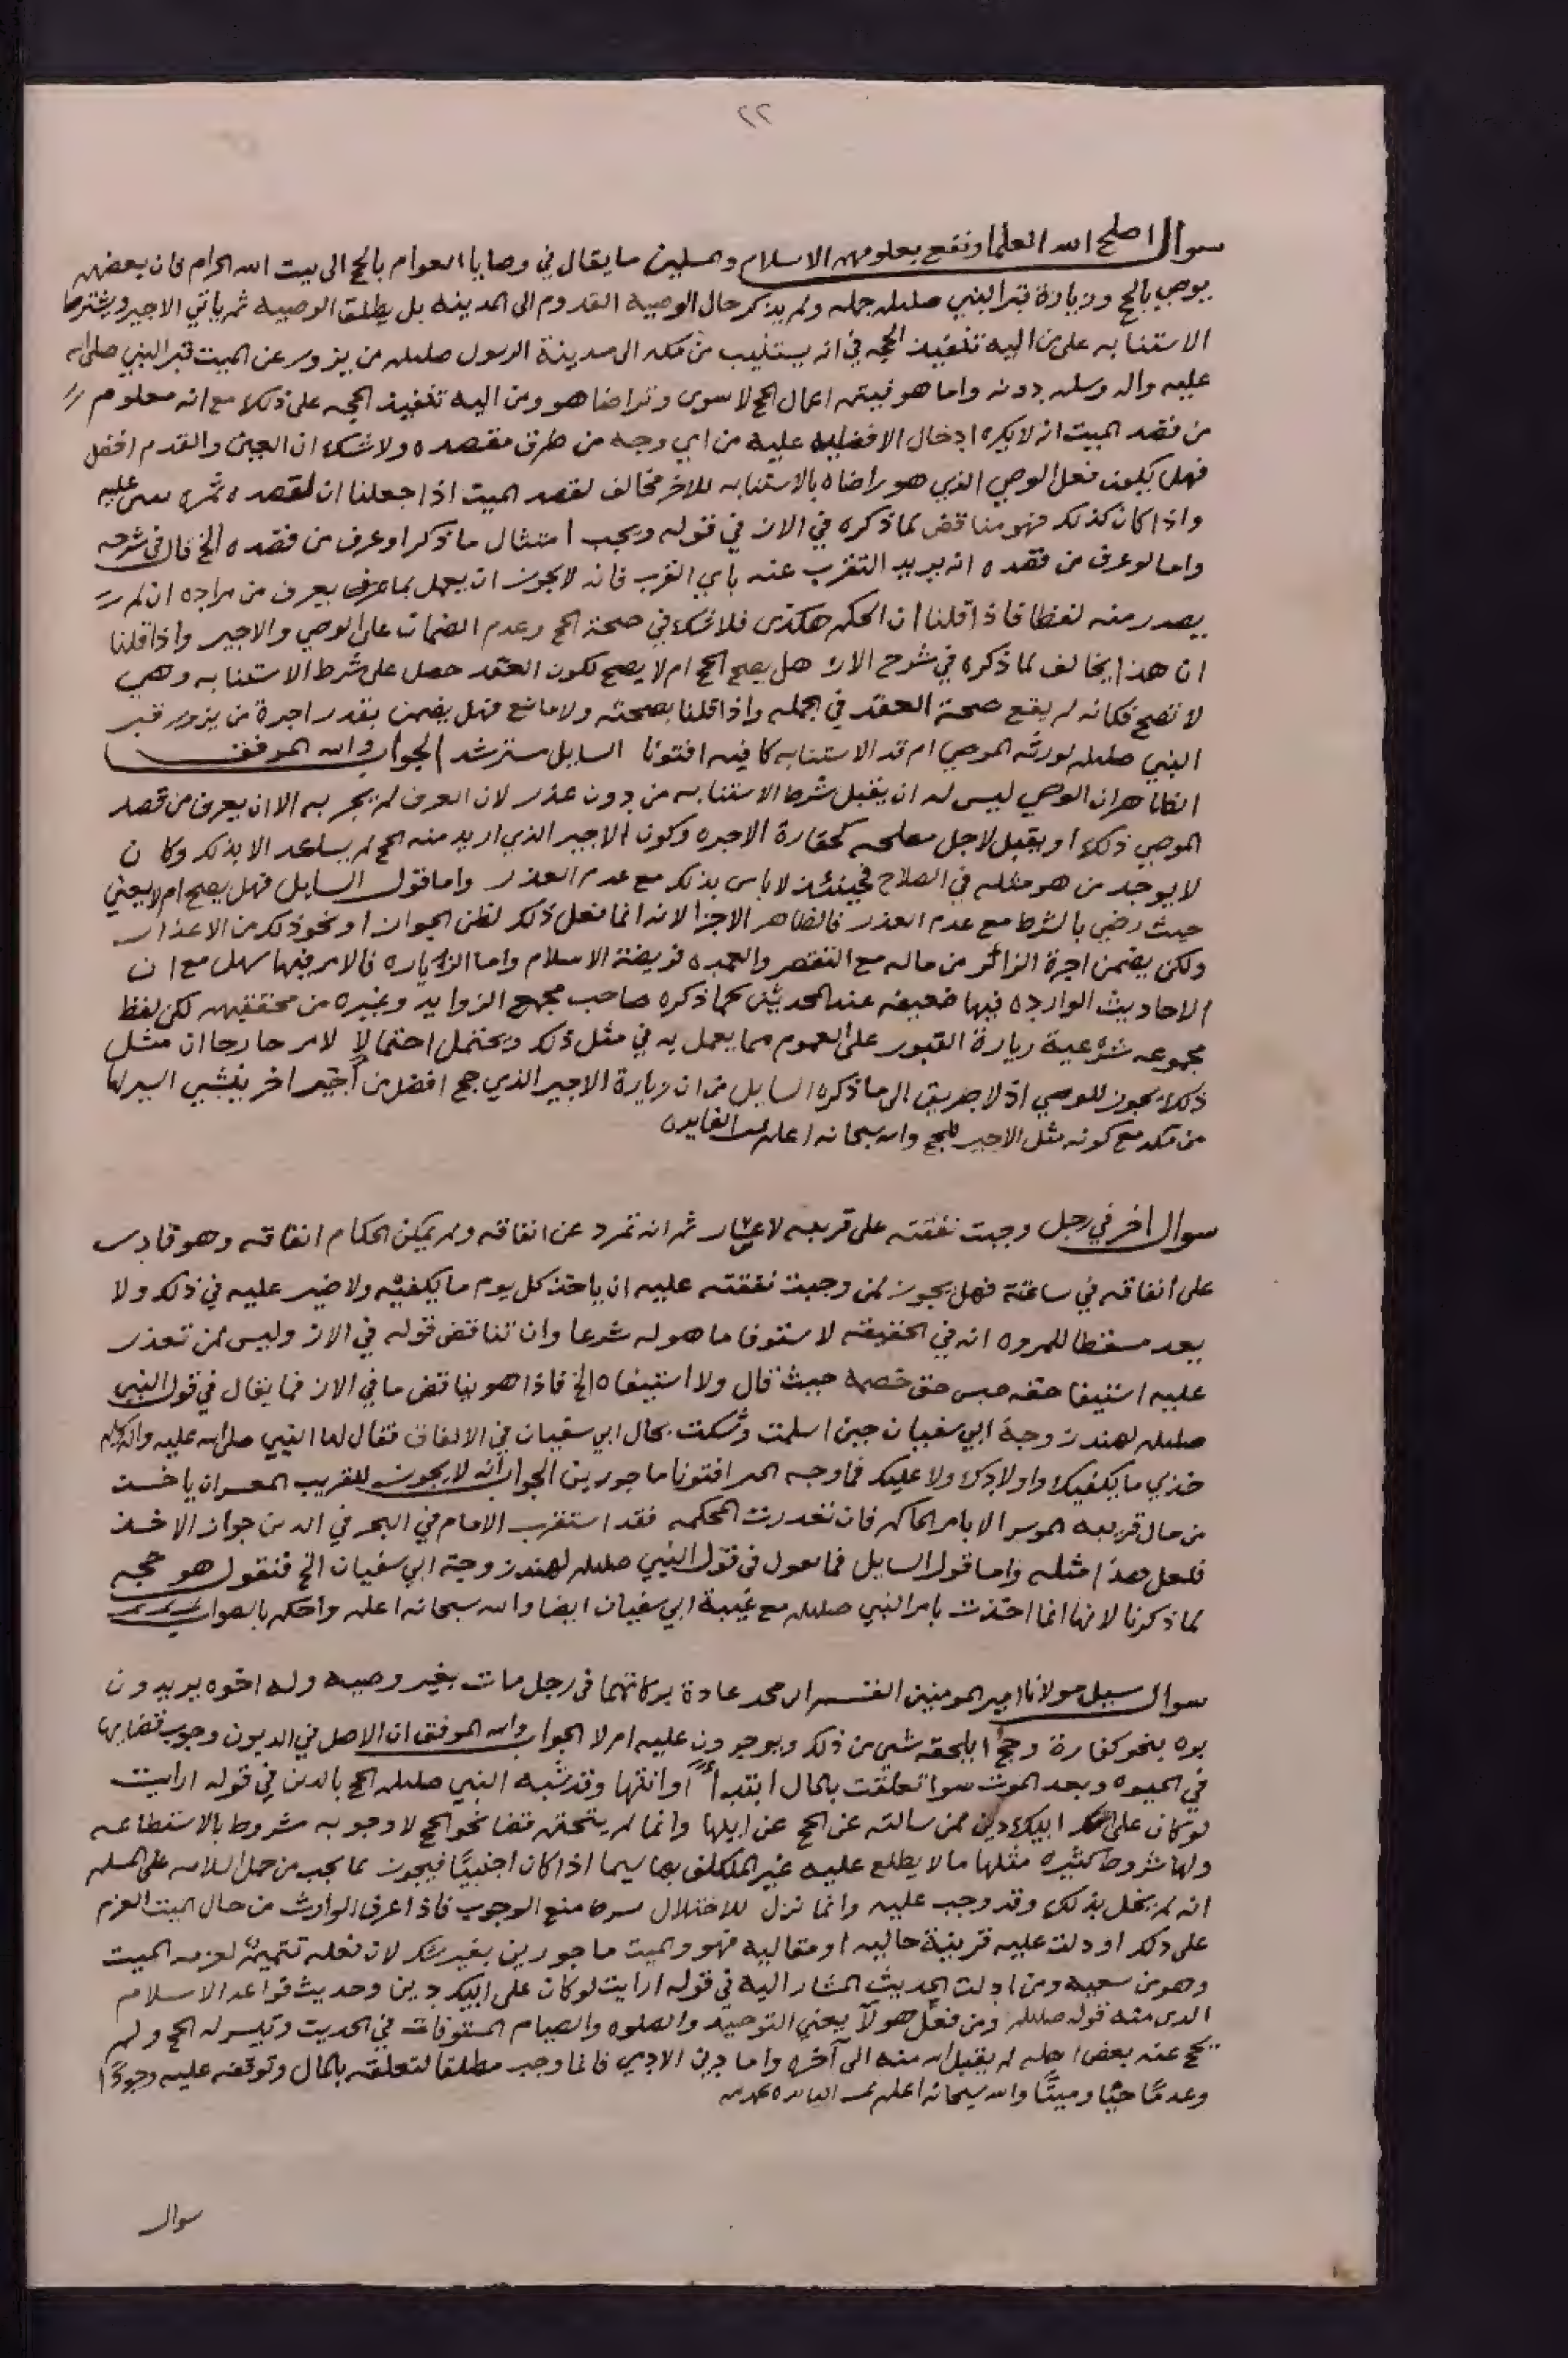 ٢٢
سوال اصلح الله العلما ونفع بعلومهم الاسلام والمسلمين ما يقال في وصايا العوام بالحج الى بيت الله الحرام فان بعضهم
يوصي بالحج وزيارة قبر النبي صللم جمله ولم يذكر حال الوصية القدوم الى المدينه بل يطلق الوصيه ثم ياتي الاجير ويشترط
الاستنابه على من اليه تنفيذ الحجه في انه يستنيب من مكه الى مدينة الرسول صللم من يزور عن الميت قبر النبي صلى الله
عليه واله وسلم دونه واما هو فيتم اعمال الحج لا سوى وتراضا هو ومن اليه تنفيذ الحجه على ذلك مع انه معلوم
من قصد الميت انه لا يكره ادخال الافضليه عليه من اي وجه من طرق مقصده ولا شك ان العين والقدم افضل
فهل يكون فعل الوصي الذي هو راضاه بالاستنابه للاخر مخالف لقصد الميت اذا جعلنا ان لقصده ثمره عليه
واذا كان كذلك فهو مناقض لما ذكره في الاز في قوله ويجب امتثال ما ذكر او عرف من قصده الخ قال في شرحه
واما لو عرف من قصده انه يريد التقرب عنه باي القرب فانه لا يجوز ان يعمل بما عرف يعرف من مراده ان لم
يصدر منه لفظا فاذا قلنا ان الحكم هكذى فلا شك في صحة الحج وعدم الضمان على الوصي والاجير واذا قلنا
ان هذا يخالف لما ذكره في شرح الاز هل يصح الحج ام لا يصح لكون العقد حصل على شرط الاستنابه وهي
لا تصح فكانه لم يقع صحة العقد في الجمله واذا قلنا بصحته ولا مانع فهل يضمن بقدر اجرة من يزور قبر
النبي صللم لورثه الموصي ام قد الاستنابه كافيه افتونا السايل مسترشد الجواب والله الموفق
الظاهر ان الوصي ليس له ان يقبل شرط الاستنابه من دون عذر لان العرف لم يجر به الا ان يعرف من قصد
الموصي ذلك او يقبل لاجل مصلحه كحقارة الاجره وكون الاجير الذي اريد منه الحج لم يساعد الا بذلك وكان
لا يوجد من هو مثله في الصلاح فحينئذ لا باس بذلك مع عدم العذر واما قول السايل فهل يصح ام لا يعني
حيث رضي بالشرط مع عدم العذر فالظاهر الاجزا لانه انما فعل ذلك لظن الجواز او نحو ذلك من الاعذار
ولكن يضمن اجرة الزائر من ماله مع التقصير والعمده فريضة الاسلام واما الزياره فالامر فيها سهل مع ان
الاحاديث الوارده فيها ضعيفه عند المحدثين كما ذكره صاحب مجمع الزوايد وغيره من محققيهم لكن لفظ
مجموعه شرعية زيارة القبور على العموم مما يعمل به في مثل ذلك ويحتمل احتمالا لامر خارجا ان مثل
ذلك يجوز للوصي اذ لا طريق الى ما ذكره السايل من ان زيارة الاجير الذي حج افضل من اجير اخر ينشي السير لها
من مكه مع كونه مثل الاجير للحج والله سبحانه اعلم تمت الفايده
سوال اخر في رجل وجبت نفقته على قريبه لاعسار ثم انه تمرد عن انفاقه ولم يمكن الحكام انفاقه وهو قادر
على انفاقه في ساعته فهل يجوز لمن وجبت نفقته عليه ان ياخذ كل يوم ما يكفيه ولا ضير عليه في ذلك ولا
يعد مسقطا للمروه انه في الحقيقه لاستوفا ما هو له شرعا وان تناقض قوله في الاز وليس لمن تعذر
عليه استيفا حقه حبس حق خصمه حيث قال ولا استيفاه الخ فاذا هو يناقض ما في الاز فما يقال في قول النبي
صللم لهند زوجة ابي سفيان حين اسلمت وشكت بحال ابي سفيان في الانفاق فقال لها النبي صلى الله عليه واله وسلم
خذي ما يكفيك واولادك ولا عليك فما وجه افتونا ماجورين الجواب انه لا يجوز للقريب المعسر ان ياخذ
من مال قريبه الموسر الا بامر الحاكم فان تعذرت المحكمه فقد استقرب الامام في البحر في الدين جواز الاخذ
فلعل هذا مثله واما قول السايل فما تقول في قول النبي صللم لهند زوجة ابي سفيان الخ فنقول هو حجه
لما ذكرنا لانها انما اخذت بامر النبي صللم مع غيبة ابي سفيان ايضا والله سبحانه اعلم واحكم بالصواب
سوال سيل مولانا امير المومنين محمد عادة بركاتهما في رجل مات بغير وصيه وله اخوه يريدون
بره بنحو كفارة وحج ايلحقه شي من ذلك ويوجرون عليه ام لا الجواب والله الموفق ان الاصل في الديون وجوب قضايها
في الحيوه وبعد الموت سوا تعلقت بالمال ابتداءً او انتها وقد شبه النبي صللم الحج بالدين في قوله ارايت
لو كان على ابيك دين لمن سالته عن الحج عن ابيها وانما لم يتحتم قضا نحو الحج لا وجوبه مشروط بالاستطاعه
ولها شروط كثيره مثلها ما لا يطلع عليه غير المكلف بها سيما اذا كان اجنبيًا فيجوز لما يجب من حمل السلامه على المسلم
انه لم يخل بذلك وقد وجب عليه وانما نزل للاختلال منع الوجوب فاذا عرف الوارث من حال الميت العزم
على ذلك او دلت عليه قرينة حاليه او مقاليه فهو والميت ماجورين بغير شك لان فعله تتميمًا لعزمه الميت
وهو من سعيه ومن ادلته الحديث المشار اليه في قوله ارايت لو كان على ابيك دين وحديث قواعد الاسلام
الذى منه قوله صللم ومن فعل هولآ يعني التوحيد والصلوه والصيام المستوفات في الحديث وتيسر له الحج ولم
يحج عنه بعض اهله لم يقبل الله منه الى آخره واما دين الادمي فانما وجب مطلقا لتعلقه بالمال وتوقفه عليه وجودًا
وعدمًا حيًا وميتًا والله سبحانه اعلم
سوال